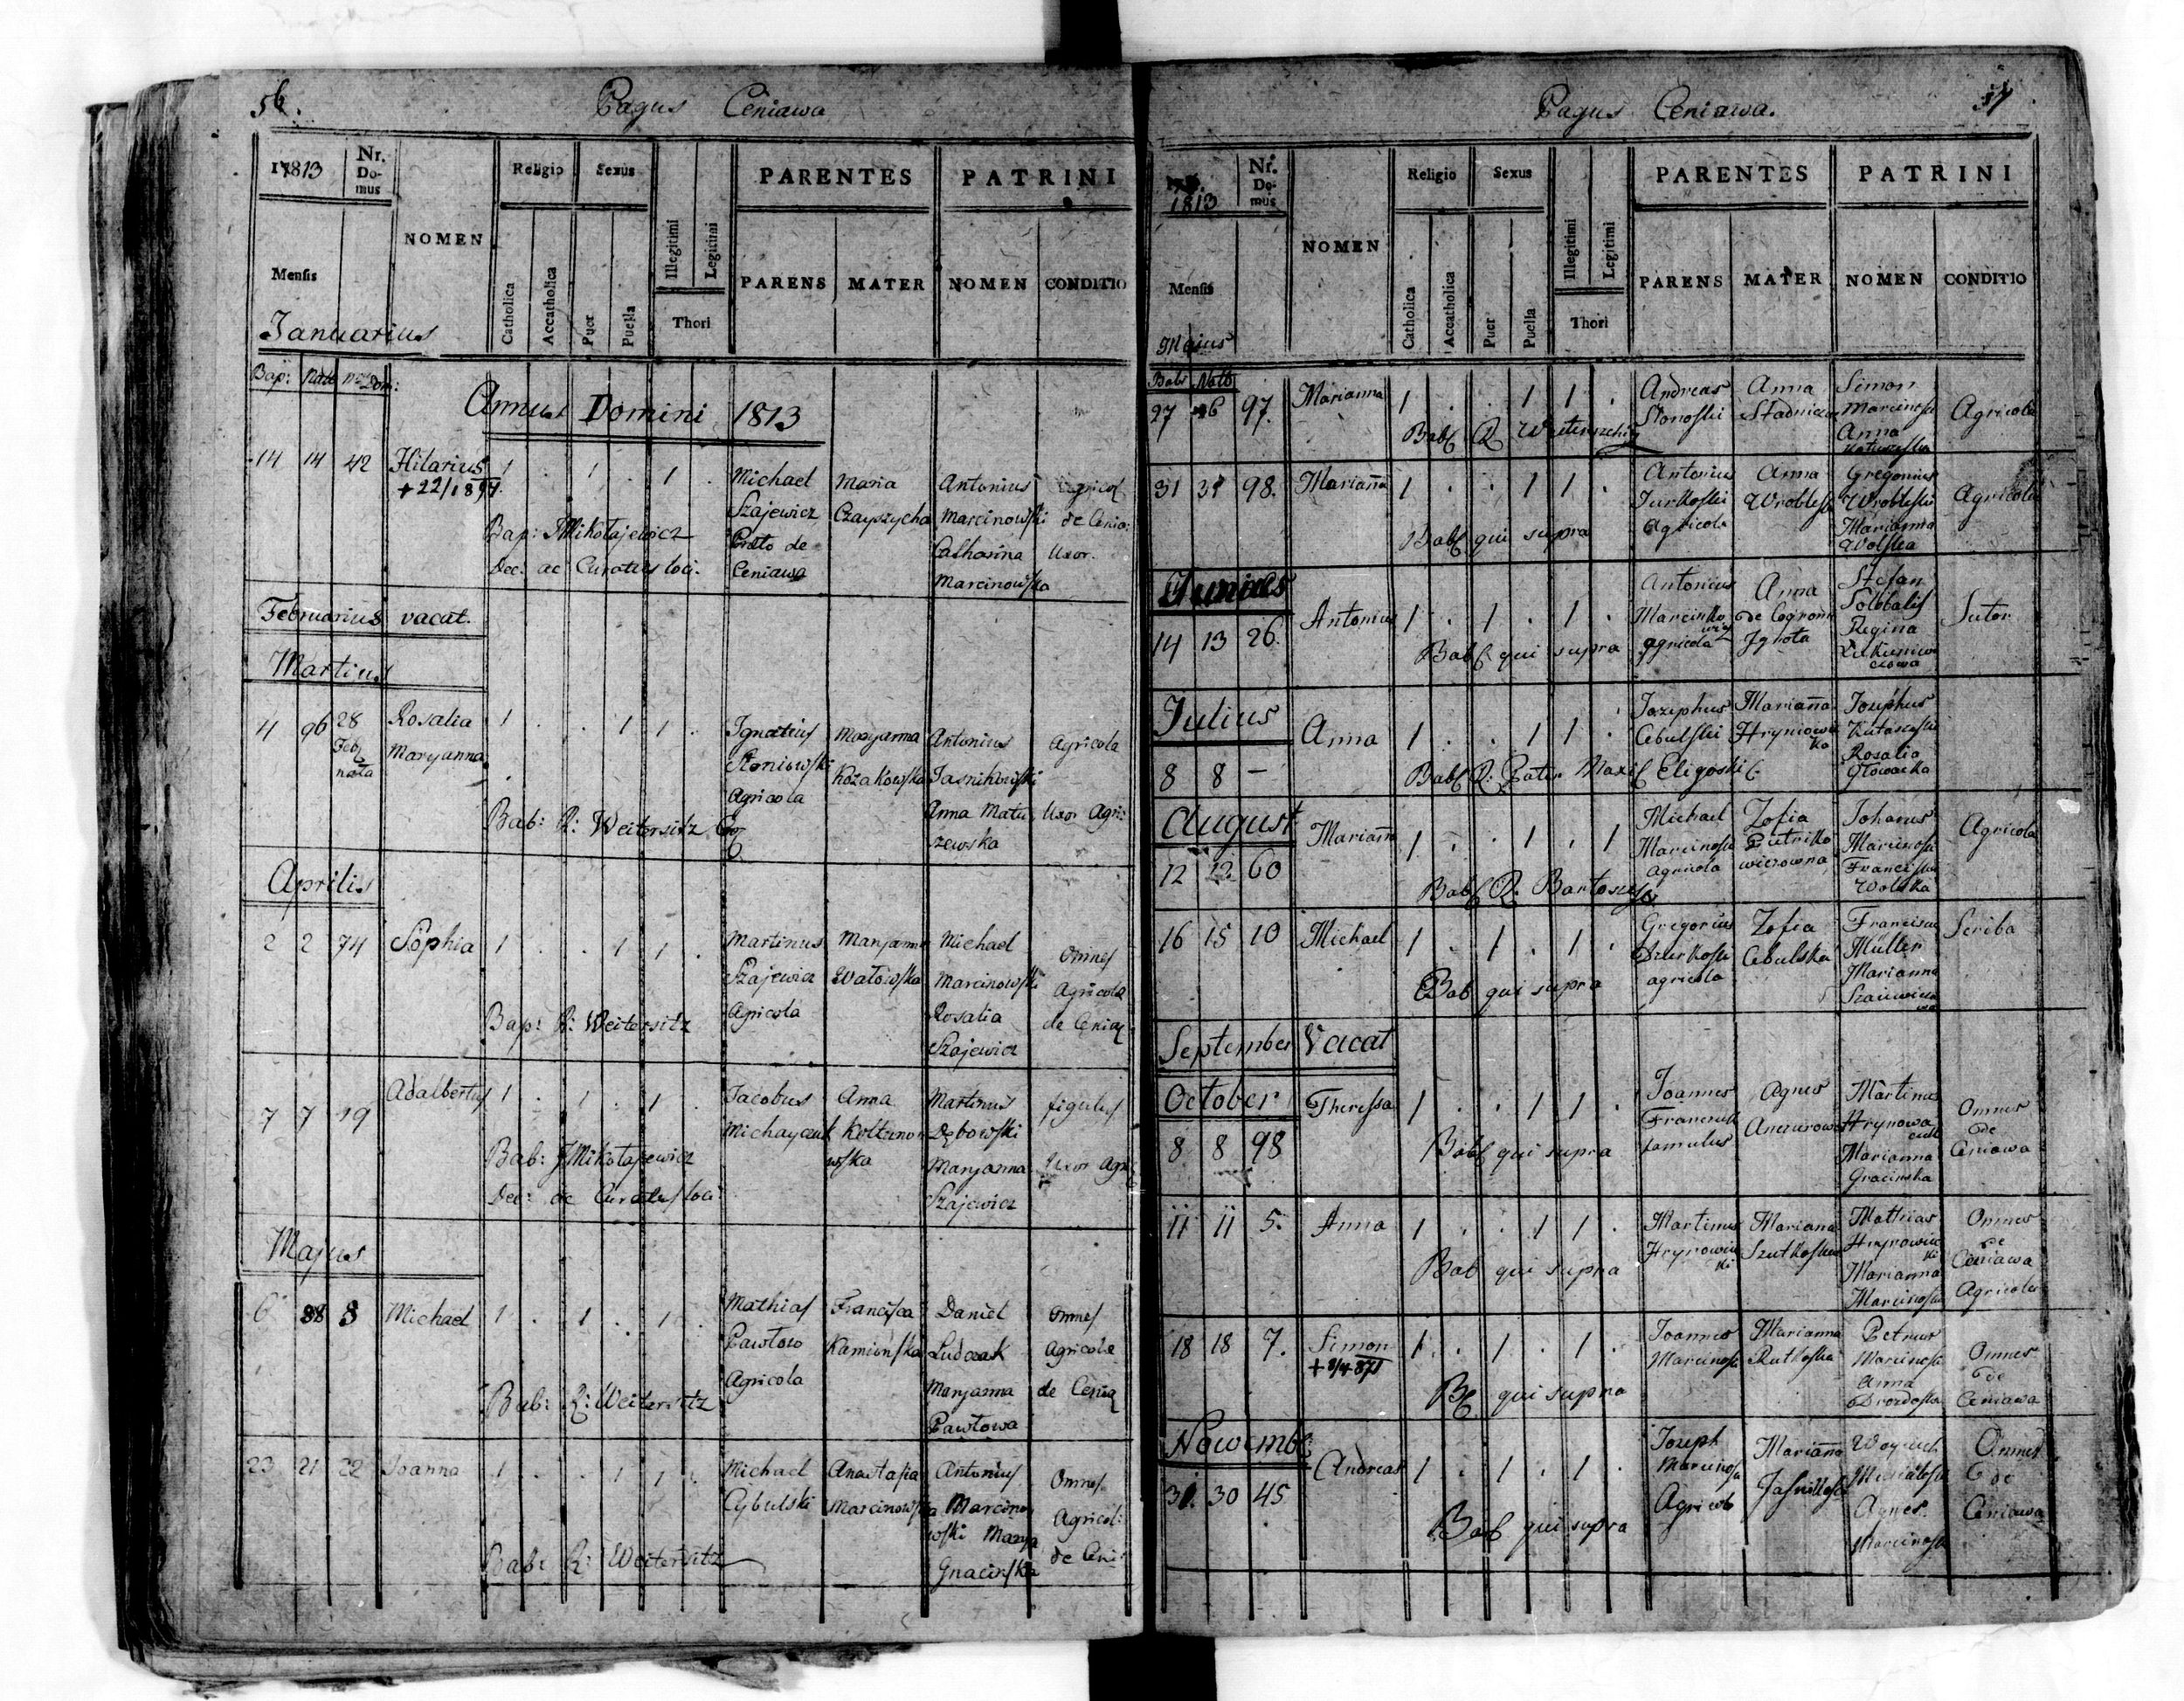 56.
Pagus Ceniawa
17813
Nr. Domus
NOMEN
Religio
Sexus
Catholica
Accatholica
Puer
Puella
Illegitimi
Legitimi
Thori
PARENTES
PATRINI
PARENS
MATER
NOMEN
CONDITIO
Mensis
Januarius
Bap: Dom:
Annus Domini 1813
14 14 42 Hilarius 1 . 1 . 1 .
+22/1
Michael
Szajewicz
de
Ceniawa
Maria
Czayszycha
Antonius
Marcinowski
Catharina
Marcinowska
Agricol
de Cenia:
Uxor.
Bap: J Mikołajewicz
Dec: ac Curatus loci.
Februarius vacat.
Martius
4 26 28
Feb
nata
Rosalia
Maryanna
1 . . 1 1 .
Ignatius
Agricola
Maryanna
Kozakowska
Antonius
Jasnikowski
Anna Matu
szewska
Agricola
Uxor Agri:
Bab: R: Weitersitz
Aprilis
2 2 74 Sophia 1 . . 1 1 .
Martinus
Szajewicz
Agricola
Maryanna
Wałowska
Michael
Marcinowski
Rosalia
Szajewicz
Omnes
Agricola
de Cenia
Bap: R: Weitersitz
7 7 19 Adalbertus 1 . 1 . 1 .
Jacobus
Michayczuk
Anna
Koltuno
wska
Martinus
Dębowski
Maryanna
Szajewicz
figulus
Uxor Agri
Bab: J Mikołajewicz
Dec: ac Curatus loci
Majus
6 8 Michael 1 . 1 . 1 .
Mathias
Pawłow
Agricola
Francisca
Kamińska
Daniel
Ludczak
Maryanna
Pawłowa
Omnes
Agricola
de Cenia
Bab: R: Weitersitz
23 21 22 Joanna 1 . . 1 1 .
Michael
Cybulski
Anastasia
Marcinowska
Antonius
Marcino
wski Marya
Gnacińska
Omnes
Agricol:
de Ceni:
Bab: R: Weitersitz
57
Pagus Ceniawa.
1813
Nr. Domus
NOMEN
Religio
Sexus
Catholica
Accatholica
Puer
Puella
Illegitimi
Legitimi
Thori
PARENTES
PATRINI
PARENS
MATER
NOMEN
CONDITIO
Mensis
Majus
27 26 97. Marianna 1 . . 1 1 .
Andreas
Słonoski
Anna
Simon
Marcinoski
Anna
Agricola
Bab R
31 31 98. Marianna 1 . . 1 1 .
Antonius
Jurkoski
Agricola
Anna
Wrobleska
Gregorius
Wrobleski
Marianna
Wolska
Agricola
Bab qui supra
Junius
14 13 26. Antonius 1 . 1 . 1 .
Antonius
Marcinko
wicz
agricola
Anna
de Cognom
Ignota
Stefan
Regina
Sutor
Bab qui supra
Julius
8 8 — Anna 1 . . 1 1 .
Jozephus
Cebulski
Marianna
Hryniows
ka
Josephus
Rosalia
Głowacka
Bab R: Pater Eligoski
August
12 12 60 Mariann 1 . . 1 . 1
Michael
Marcinoski
agricola
Zofia
wiczowna
Johanus
Marcinoski
Francisca
Wolska
Agricola
Bab R.
16 15 10 Michael 1 . 1 . 1 .
Gregorius
agricola
Zofia
Cebulska
Franciscus
Müller
Marianna
Scriba
Bab qui supra
September Vacat
October
8 8 98 Theressa 1 . . 1 1 .
Joannes
famulus
Agnes
Martinus
Hrynowa
Marianna
Gracinska
Omnes
de
Ceniawa
Bab qui supra
11 11 5. Anna 1 . . 1 1 .
Martinus
Hrynowiec
ki
Mariana
Szutkoska
Mathias
Hrynowiec
ki
Marianna
Marcinoska
Omnes
de
Ceniawa
Agricola
Bab qui supra
18 18 7. Simon 1 . 1 . 1 .
+8/4 871
Joannes
Marcinoski
Marianna
Rutkoska
Petrus
Marcinoski
Anna
Drozdoska
Omnes
de
Ceniawa
B qui supra
Nowembe
31. 30 45 Andreas 1 . 1 . 1 .
Joseph
Marcinoski
Agricola
Marianna
Agnes
Marcinoska
Omnes
de
Ceniawa
Bab qui supra